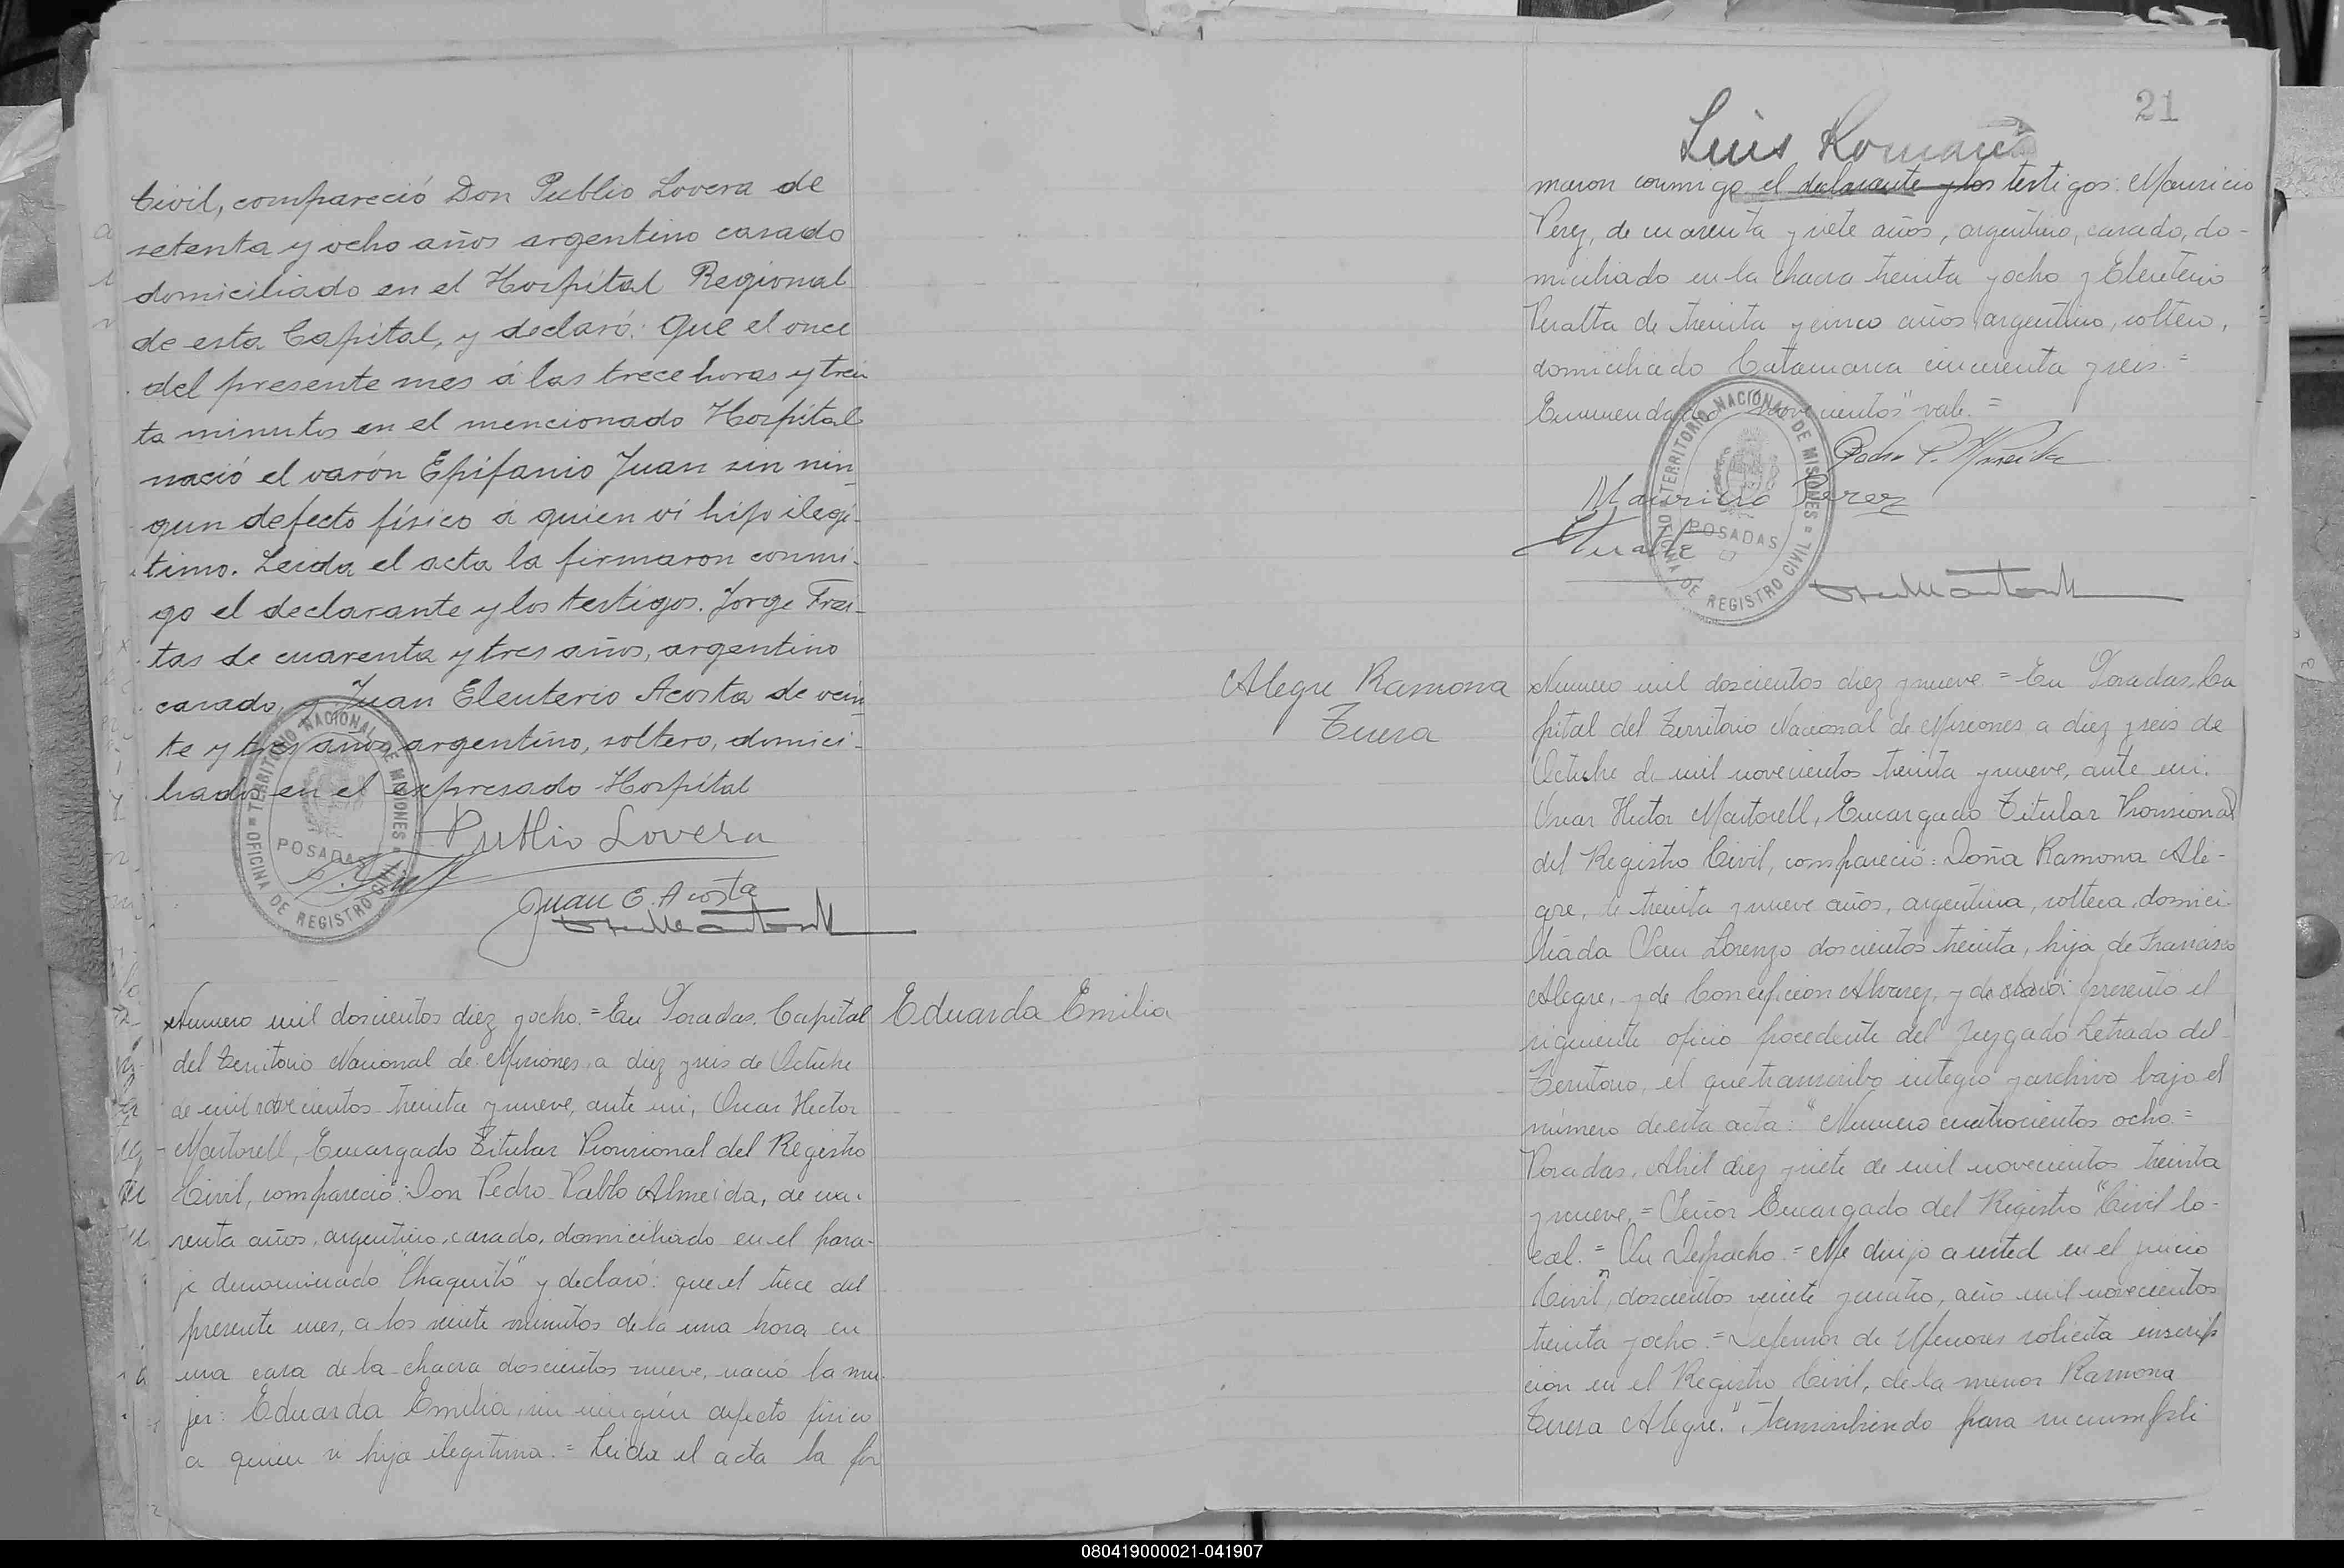 Civil, compareció Don Publio Lovera de
setenta y ocho años argentino casado
domiciliado en el Hospital Regional
de esta Capital, y declaró: Que el once
del presente mes á las trece horas y trein
ta minutos en el mencionado Hospital
nació el varón Epifanio Juan sin nin
gun defecto físico á quien ví hijo ilegí-
timo. Leida el acta la firmaron conmi-
go el declarante y los testigos. Jorge Frei-
tas de cuarenta y tres años, argentino
casado, y Juan Eleuterio Acosta de vein
te y tres años argentino, soltero, domici-
liados en el expresado Hospital
TERRITORIO NACIONAL DE MISIONES
POSADAS
OFICINA DE REGISTRO CIVIL
Publio Lovera
Juan E. Acosta
Eduarda Emilia
Numero mil doscientos diez y ocho. = En Posadas, Capital
del Territorio Nacional de Misiones, a diez y seis de Octubre
de mil novecientos treinta y nueve, ante mi, Oscar Hector
Martorell, Encargado Titular Provisional del Registro
Civil, compareció: Don Pedro Pablo Almeida, de cua-
renta años, argentino, casado, domiciliado en el para-
je denominado "Chaquito" y declaró: que el trece del
presente mes, a los veinte minutos de la una hora en
una casa de la chacra doscientos nueve, nació la mu-
jer: Eduarda Emilia, sin ningún defecto fisico
a quien vi hija ilegitima. = Leida el acta la fir
21
Luis Roman
maron conmigo el declarante y los testigos: Mauricio
Perez, de cuarenta y siete años, argentino, casado, do-
miciliado en la chacra treinta y ocho y Eleuterio
Peralta de treinta y cinco años, argentino, soltero,
domiciliado Catamarca cincuenta y seis. =
Enmendado "novecientos" vale. =
TERRITORIO NACIONAL DE MISIONES
POSADAS
OFICINA DE REGISTRO CIVIL
Mauricio Perez
Alegre Ramona
Teresa
Numero mil doscientos diez y nueve = En Posadas, Ca
pital del Territorio Nacional de Misiones a diez y seis de
Octubre de mil novecientos treinta y nueve, ante mi.
Oscar Hector Martorell, Encargado Titular Provisional
del Registro Civil, compareció: Doña Ramona Ale-
gre, de treinta y nueve años, argentina, soltera, domici-
liada San Lorenzo doscientos treinta, hija de Francisco
Alegre, y de Concepcion Alvarez, y declaró: presento el
siguiente oficio procedente del Juzgado Letrado del
Territorio, el que transcribo integro y archivo bajo el
número de esta acta: "Numero cuatrocientos ocho =
Posadas, Abril diez y siete de mil novecientos treinta
y nueve. = Señor Encargado del Registro "Civil lo-
cal. = Su Despacho = Me dirijo a usted en el juicio
Civil, doscientos veinte y cuatro, año mil novecientos
treinta y ocho = Defensor de Menores solicita inscrip
cion en el Registro Civil, de la menor Ramona
Teresa Alegre.", transcribiendo para su cumpli
080419000021-041907